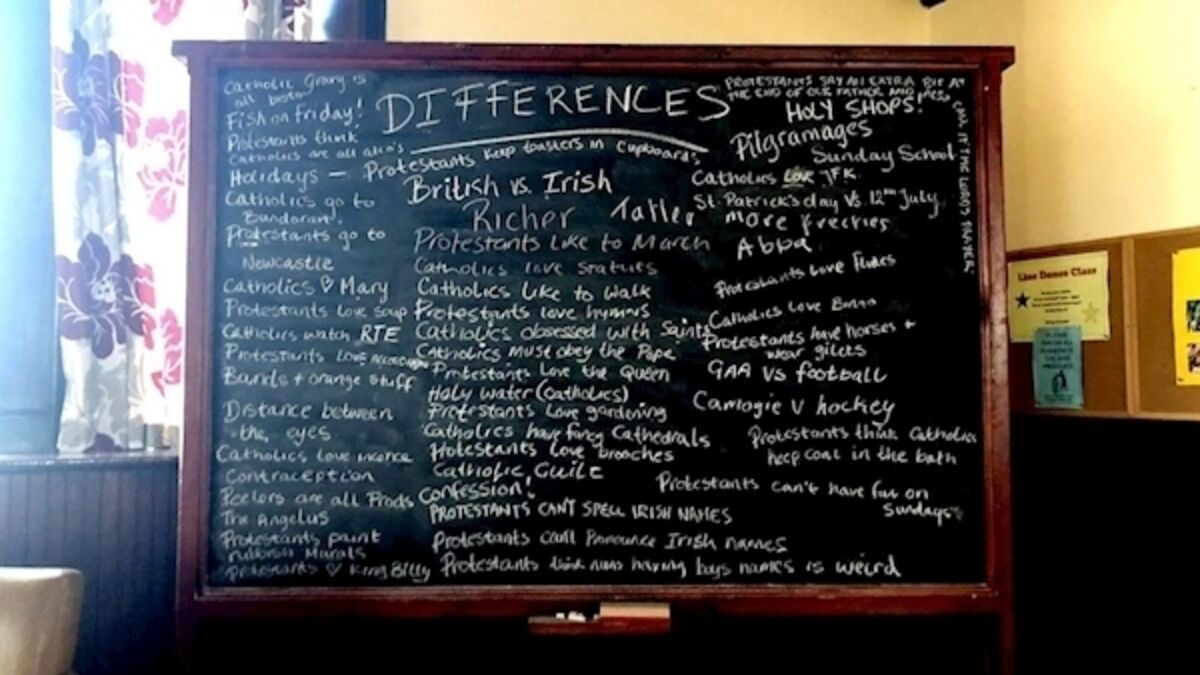 DIFFERENCES
Catholic Gravy is
all bisto
Fish on Friday!
Protestants think
Catholics are all
Holidays –
Catholics go to
Bundoran.
Protestants go to
Newcastle
Catholics ♡ Mary
Protestants love soup
Catholics watch RTE
Protestants LOVE
Bands + orange stuff
Distance between
the eyes
Catholics love
Contraception
Peelers are all Prods
The Angelus
Protestants paint
Murals
Protestants ♡ King Billy
Protestants keep toasters in cupboards
British vs. Irish
Richer Taller
Protestants like to March
Catholics love statues
Catholics like to walk
Protestants love hymns
Catholics obsessed with Saints
Catholics must obey the Pope
Protestants love the Queen
Holy water (Catholics)
Protestants love gardening
Catholics have fancy Cathedrals
Protestants love brooches
Catholic Guilt
Confession!
PROTESTANTS CAN'T SPELL IRISH NAMES
Protestants can't Pronounce Irish names
Protestants think nuns having boys names is weird
PROTESTANTS SAY AN EXTRA BIT AT
THE END OF OUR FATHER AND
CALL IT THE LORDS PRAYER
HOLY SHOPS!
Pilgramages
Sunday School
Catholics love JFK
St. Patrick's day VS. 12th July
More freckles
Abba
Protestants love flutes
Catholics love
Protestants have horses +
wear gilets
GAA VS football
Camogie V hockey
Protestants think Catholics
keep coal in the bath
Protestants can't have fun on
Sundays
Line Dance Class